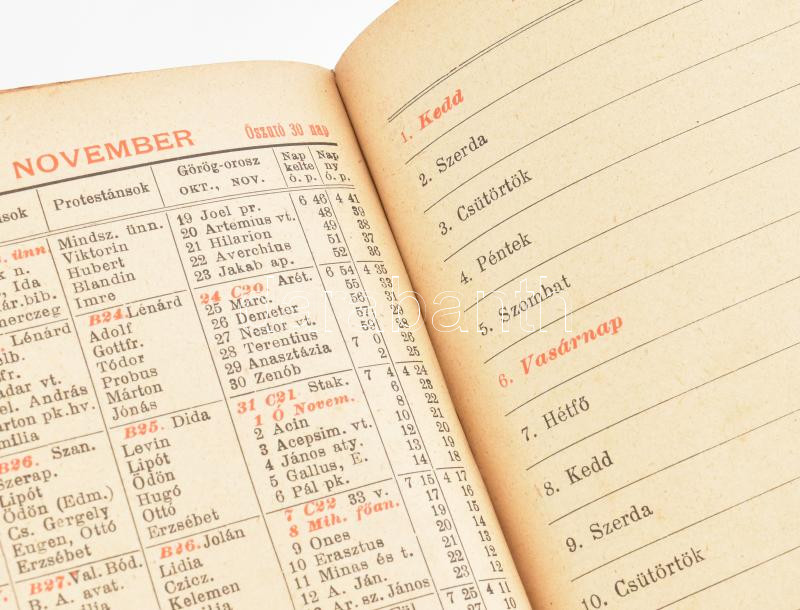 NOVEMBER Őszutó 30 nap
Protestánsok Görög-orosz OKT., NOV. Nap kelte ó. p. Nap ny ó. p.
ünn. Mindsz. ünn. 19 Joel pr. 6 46 4 41
k n. Viktorin 20 Artemius vt. 48 39
Ida Hubert 21 Hilarion 49 38
ár.bib. Blandin 22 Averchius 51 37
herczeg Imre 23 Jakab ap. 52 36
B24. Lénárd 24 C20. Arét. 6 54 4 35
Lénárd Adolf 25 Marc. 55 33
Gottfr. 26 Demeter 56 31
dar vt. Tódor 27 Nestor vt. 57 29
el. András Probus 28 Terentius 59 28
rton pk.hv. Márton 29 Anasztázia 7 0 26
mília Jónás 30 Zenób 2 25
B26. Szan. B25. Dida 31 C21 Stak. 7 4 4 24
Szerap. Levin 1 Ó Novem. 6 23
Lipót Lipót 2 Acin 8 22
Ödön (Edm.) Ödön 3 Acepsim. vt. 10 21
Cs. Gergely Hugó 4 János aty. 12 20
Engen, Ottó Ottó 5 Gallus, E. 13 19
Erzsébet Erzsébet 6 Pál pk. 14 18
B27. Val. Bód. B26. Jolán 7 C22 33 v. 7 15 4 17
B. A. avat. Lidia 8 Mih. főan. 17 16
Czicz. 9 Ones 19 15
Kelemen 10 Erasztus 20 14
11 Minas és t. 21 13
12 A. Ján. 22 12
13 Ar. sz. János 23 12
7 25 4 11
10
1. Kedd
2. Szerda
3. Csütörtök
4. Péntek
5. Szombat
6. Vasárnap
7. Hétfő
8. Kedd
9. Szerda
10. Csütörtök
darabanth